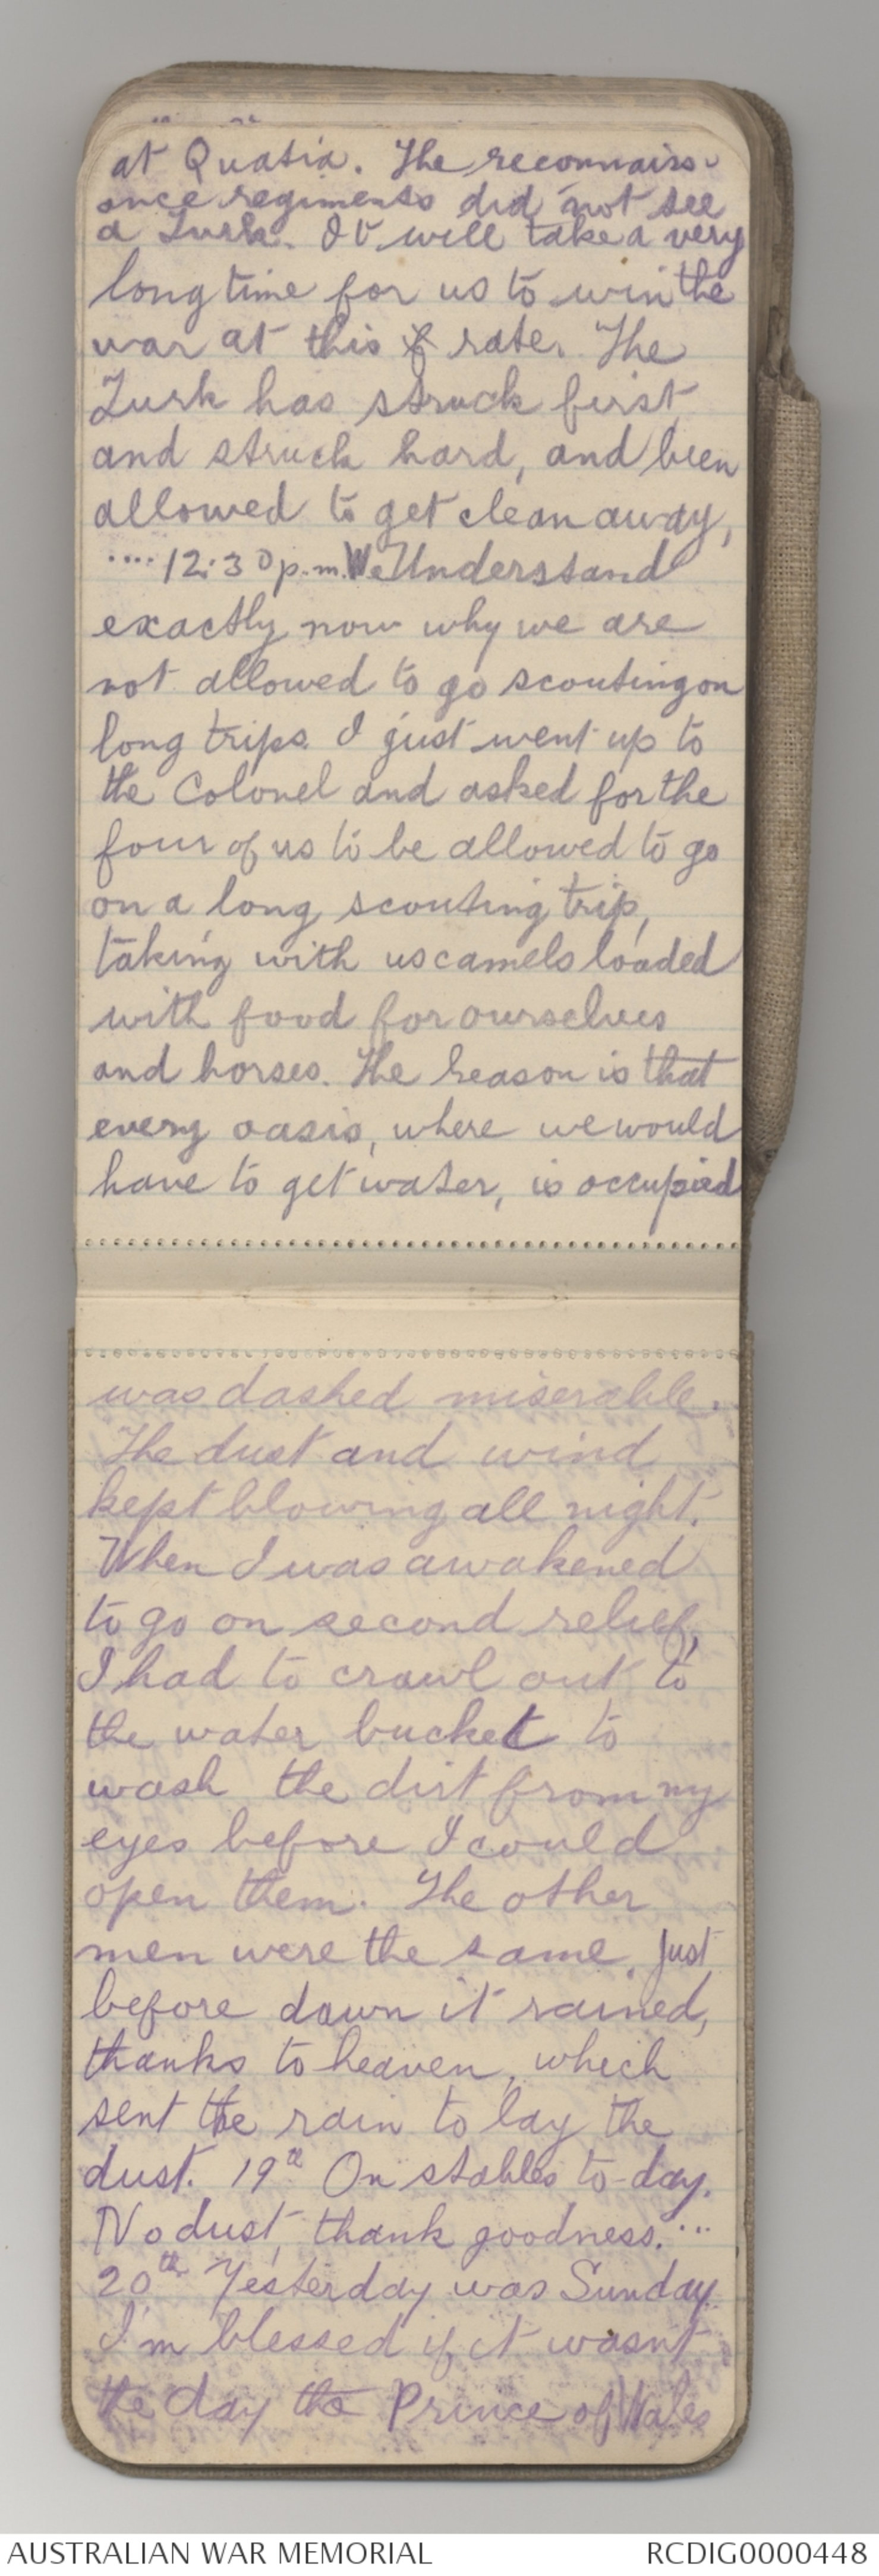 at Quatia. The reconnaiss-
ance regiments did not see
a Turk. It will take a very
long time for us to win the
war at this rate. The
Turk has struck first
and struck hard, and been
allowed to get clean away,
.... 12.30 p.m. We Understand
exactly now why we are
not allowed to go scouting on
long trips. I just went up to
the Colonel and asked for the
four of us to be allowed to go
on a long scouting trip,
taking with us camels loaded
with food for ourselves
and horses. The reason is that
every oasis, where we would
have to get water, is occupied
was dashed miserable.
The dust and wind
kept blowing all night.
When I was awakened
to go on second relief,
I had to crawl out to
the water bucket to
wash the dirt from my
eyes before I could
open them. The other
men were the same. Just
before dawn it rained,
thanks to heaven, which
sent the rain to lay the
dust. 19th On stables to-day.
No dust, thank goodness....
20th Yesterday was Sunday.
I'm blessed if it wasn't
the day the Prince of Wales
AUSTRALIAN WAR MEMORIAL
RCDIG0000448